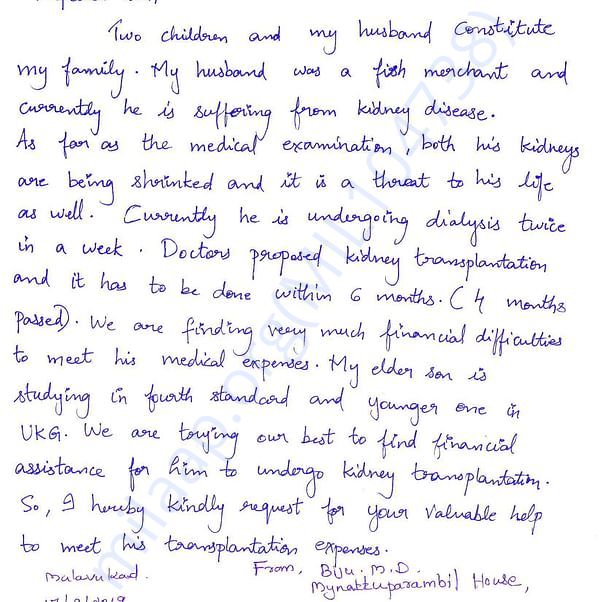 Two children and my husband constitute
my family. My husband was a fish merchant and
currently he is suffering from kidney disease.
As far as the medical examination, both his kidneys
are being shrinked and it is a threat to his life
as well. Currently he is undergoing dialysis twice
in a week. Doctors proposed kidney transplantation
and it has to be done within 6 months. (4 months
passed). We are finding very much financial difficulties
to meet his medical expenses. My elder son is
studying in fourth standard and younger one in
UKG. We are trying our best to find financial
assistance for him to undergo kidney transplantation.
So, I hereby kindly request for your valuable help
to meet his transplantation expenses.
Malavukad. From, Biju. M.D.
Mynattuparambil House,
milaap.org(MILL104738)